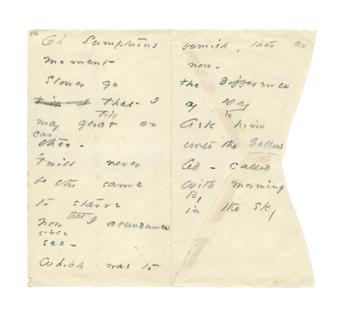 Oh Sumptuous
moment
Slower go
that I
till
may gloat on
can
thee -
'twill never
be the same
to starve
now that I abundance
since
see -
Which was to
famish, then or
now -
the difference
of Day
to
Ask him
unto the Gallows
led - called
With morning
By
in the sky